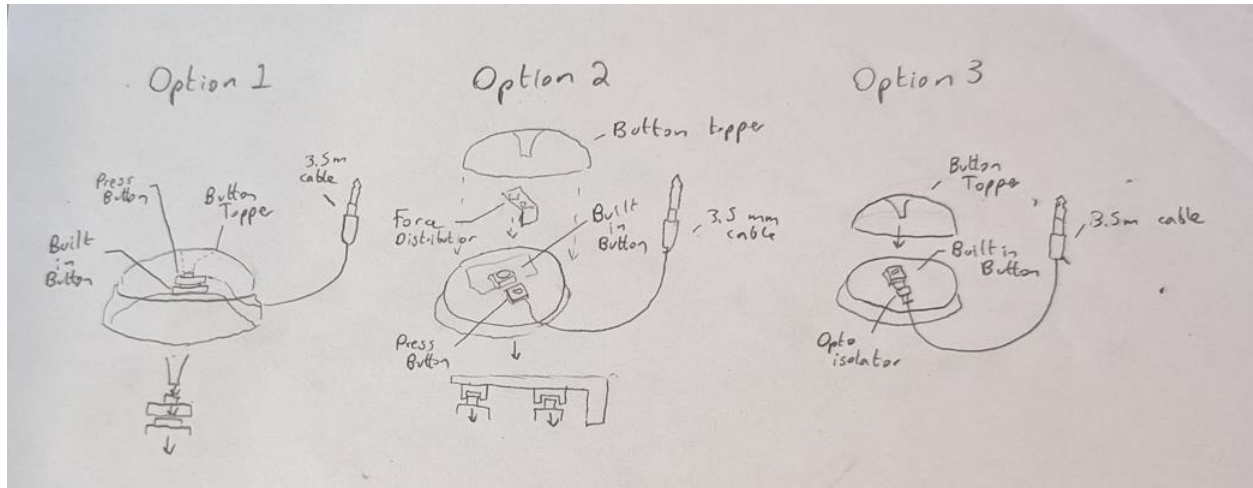 Option 1
Press
Button
Button
Topper
3.5m
cable
Built
in
Button
Option 2
Button topper
Force
Distributior
Built
in
Button
3.5 mm
cable
Press
Button
Option 3
Button
Topper
3.5m cable
Built in
Button
Opto
isolator